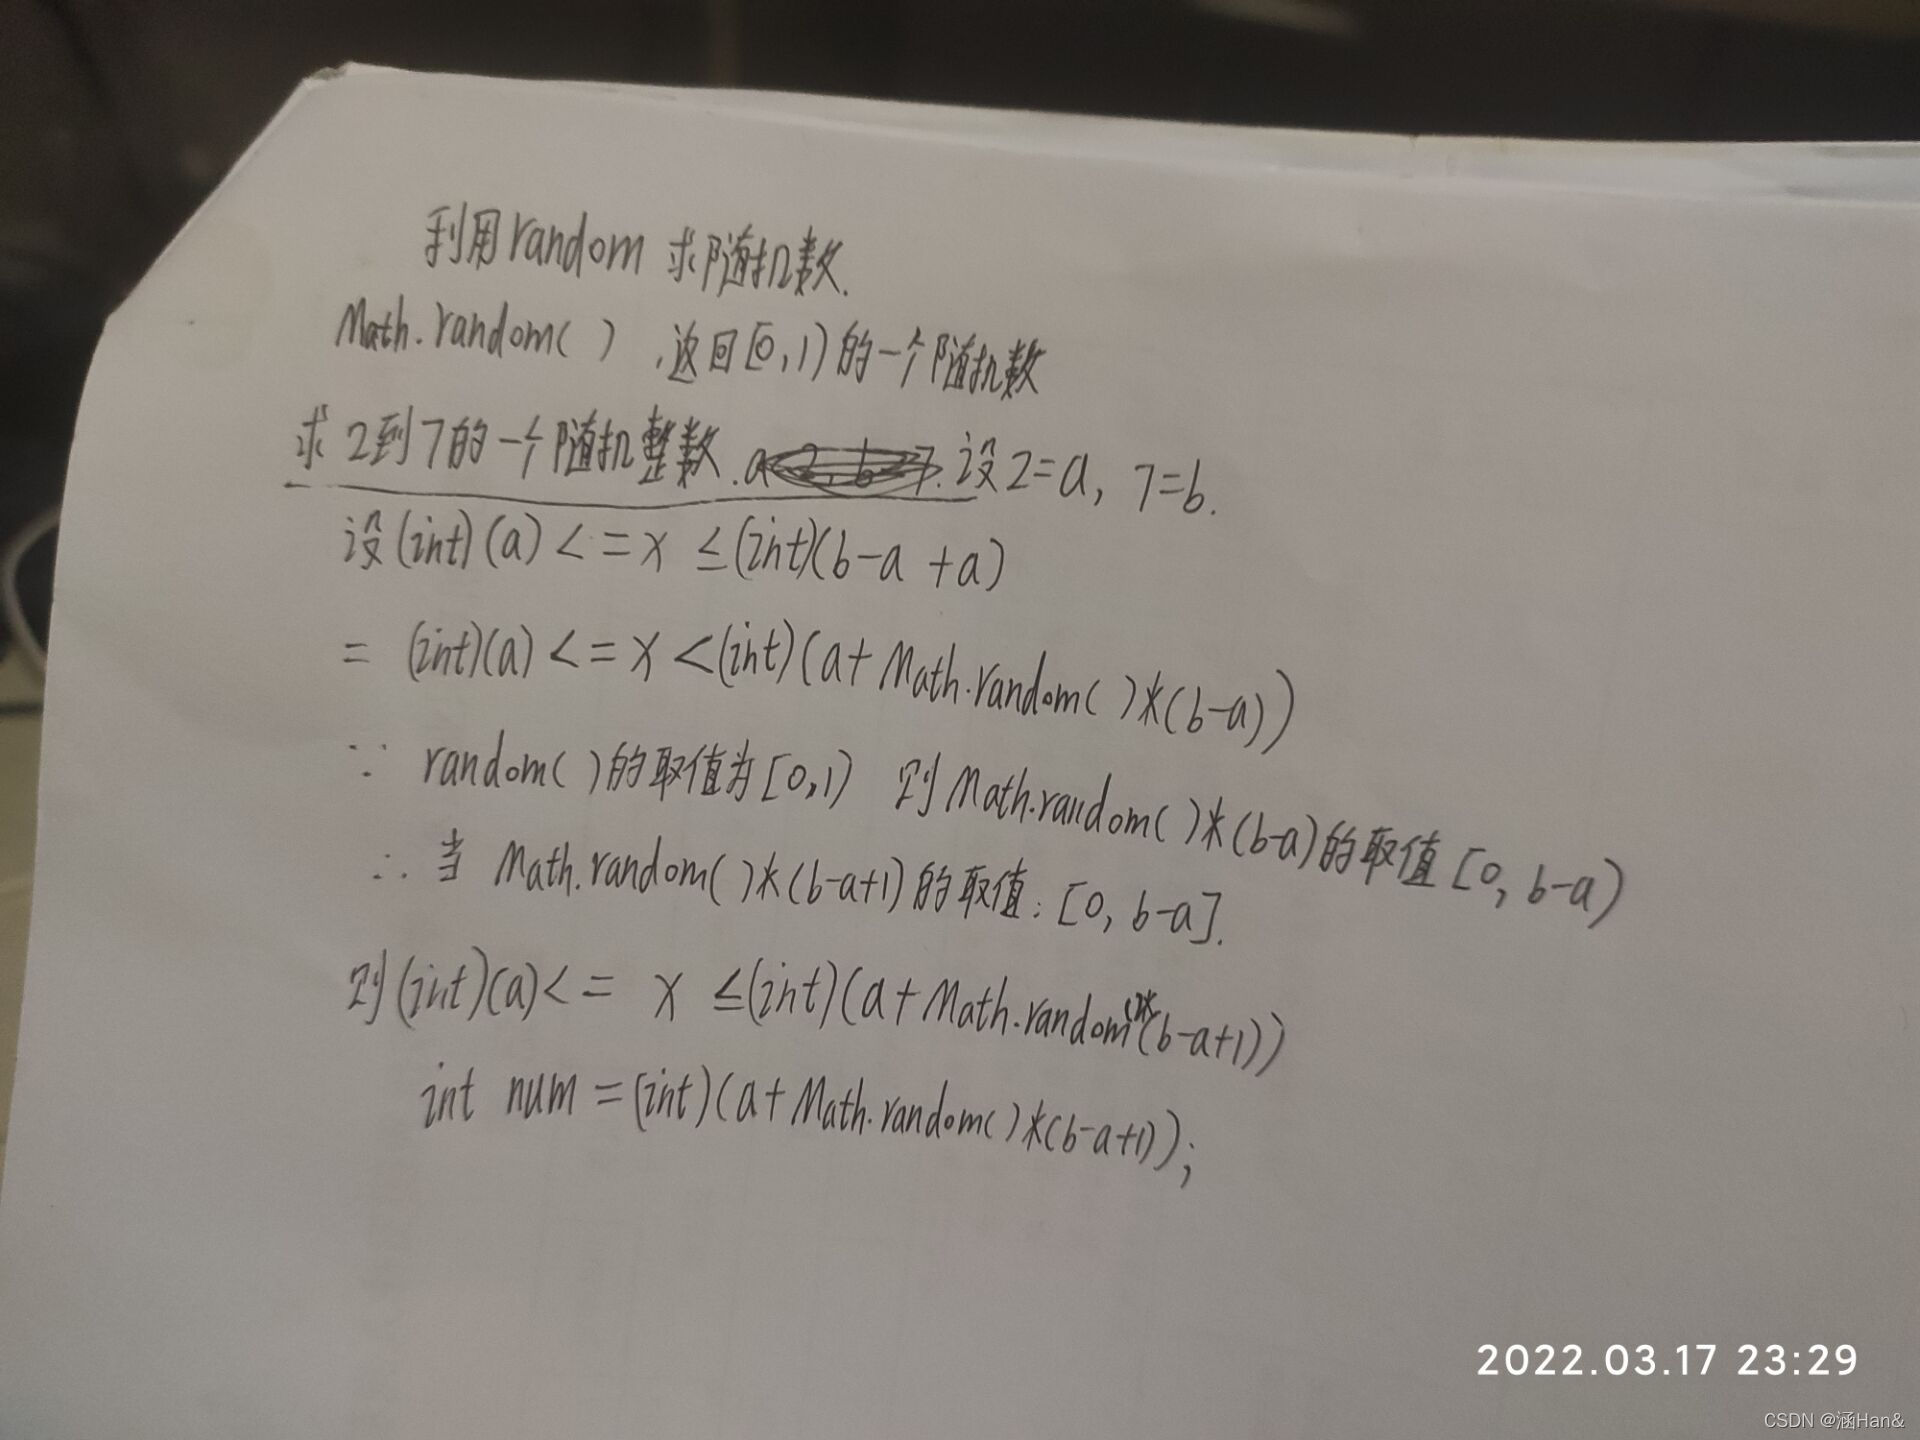 利用random 求随机数.
Math.random( ) ,返回[0,1)的一个随机数
求2到7的一个随机整数.a 设2=a, 7=b.
设(int)(a)<=x ≤(int)(b-a+a)
= (int)(a)<=x<(int)(a+Math.random( )*(b-a))
∵ random( )的取值为[0,1) 则Math.random( )*(b-a)的取值[0, b-a)
∴ 当 Math.random( )*(b-a+1)的取值: [0, b-a].
则(int)(a)<= x ≤(int)(a+Math.random()*(b-a+1))
int num =(int)(a+Math.random( )*(b-a+1));
2022.03.17 23:29
CSDN @涵Han&